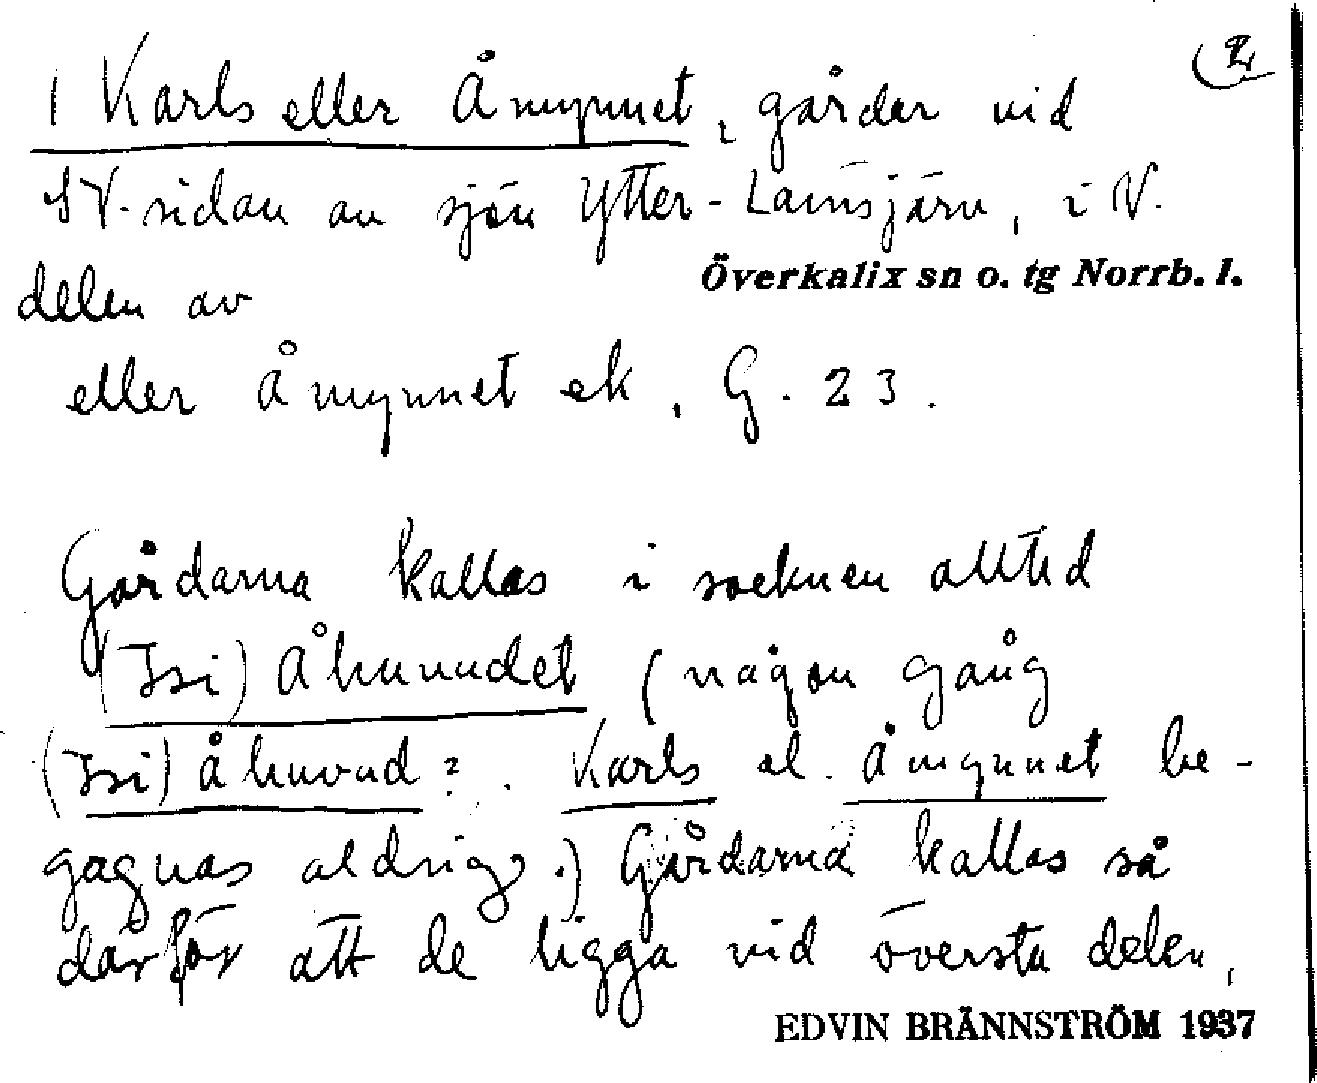 2
1 Karls eller Åmynnet, gårdar vid
SV-sidan av sjön Ytter-Lainsjärv, i V.
delen av Överkalix sn o. tg Norrb. l.
eller Åmynnet ek, G. 23.
Gårdarna kallas i socknen alltid
(Isi) Åhuvudet (någon gång
(Isi) Åhuvud?. Karls el. Åmynnet be-
gagnas aldrig.) Gårdarna kallas så
därför att de ligga vid översta delen,
EDVIN BRÄNNSTRÖM 1937